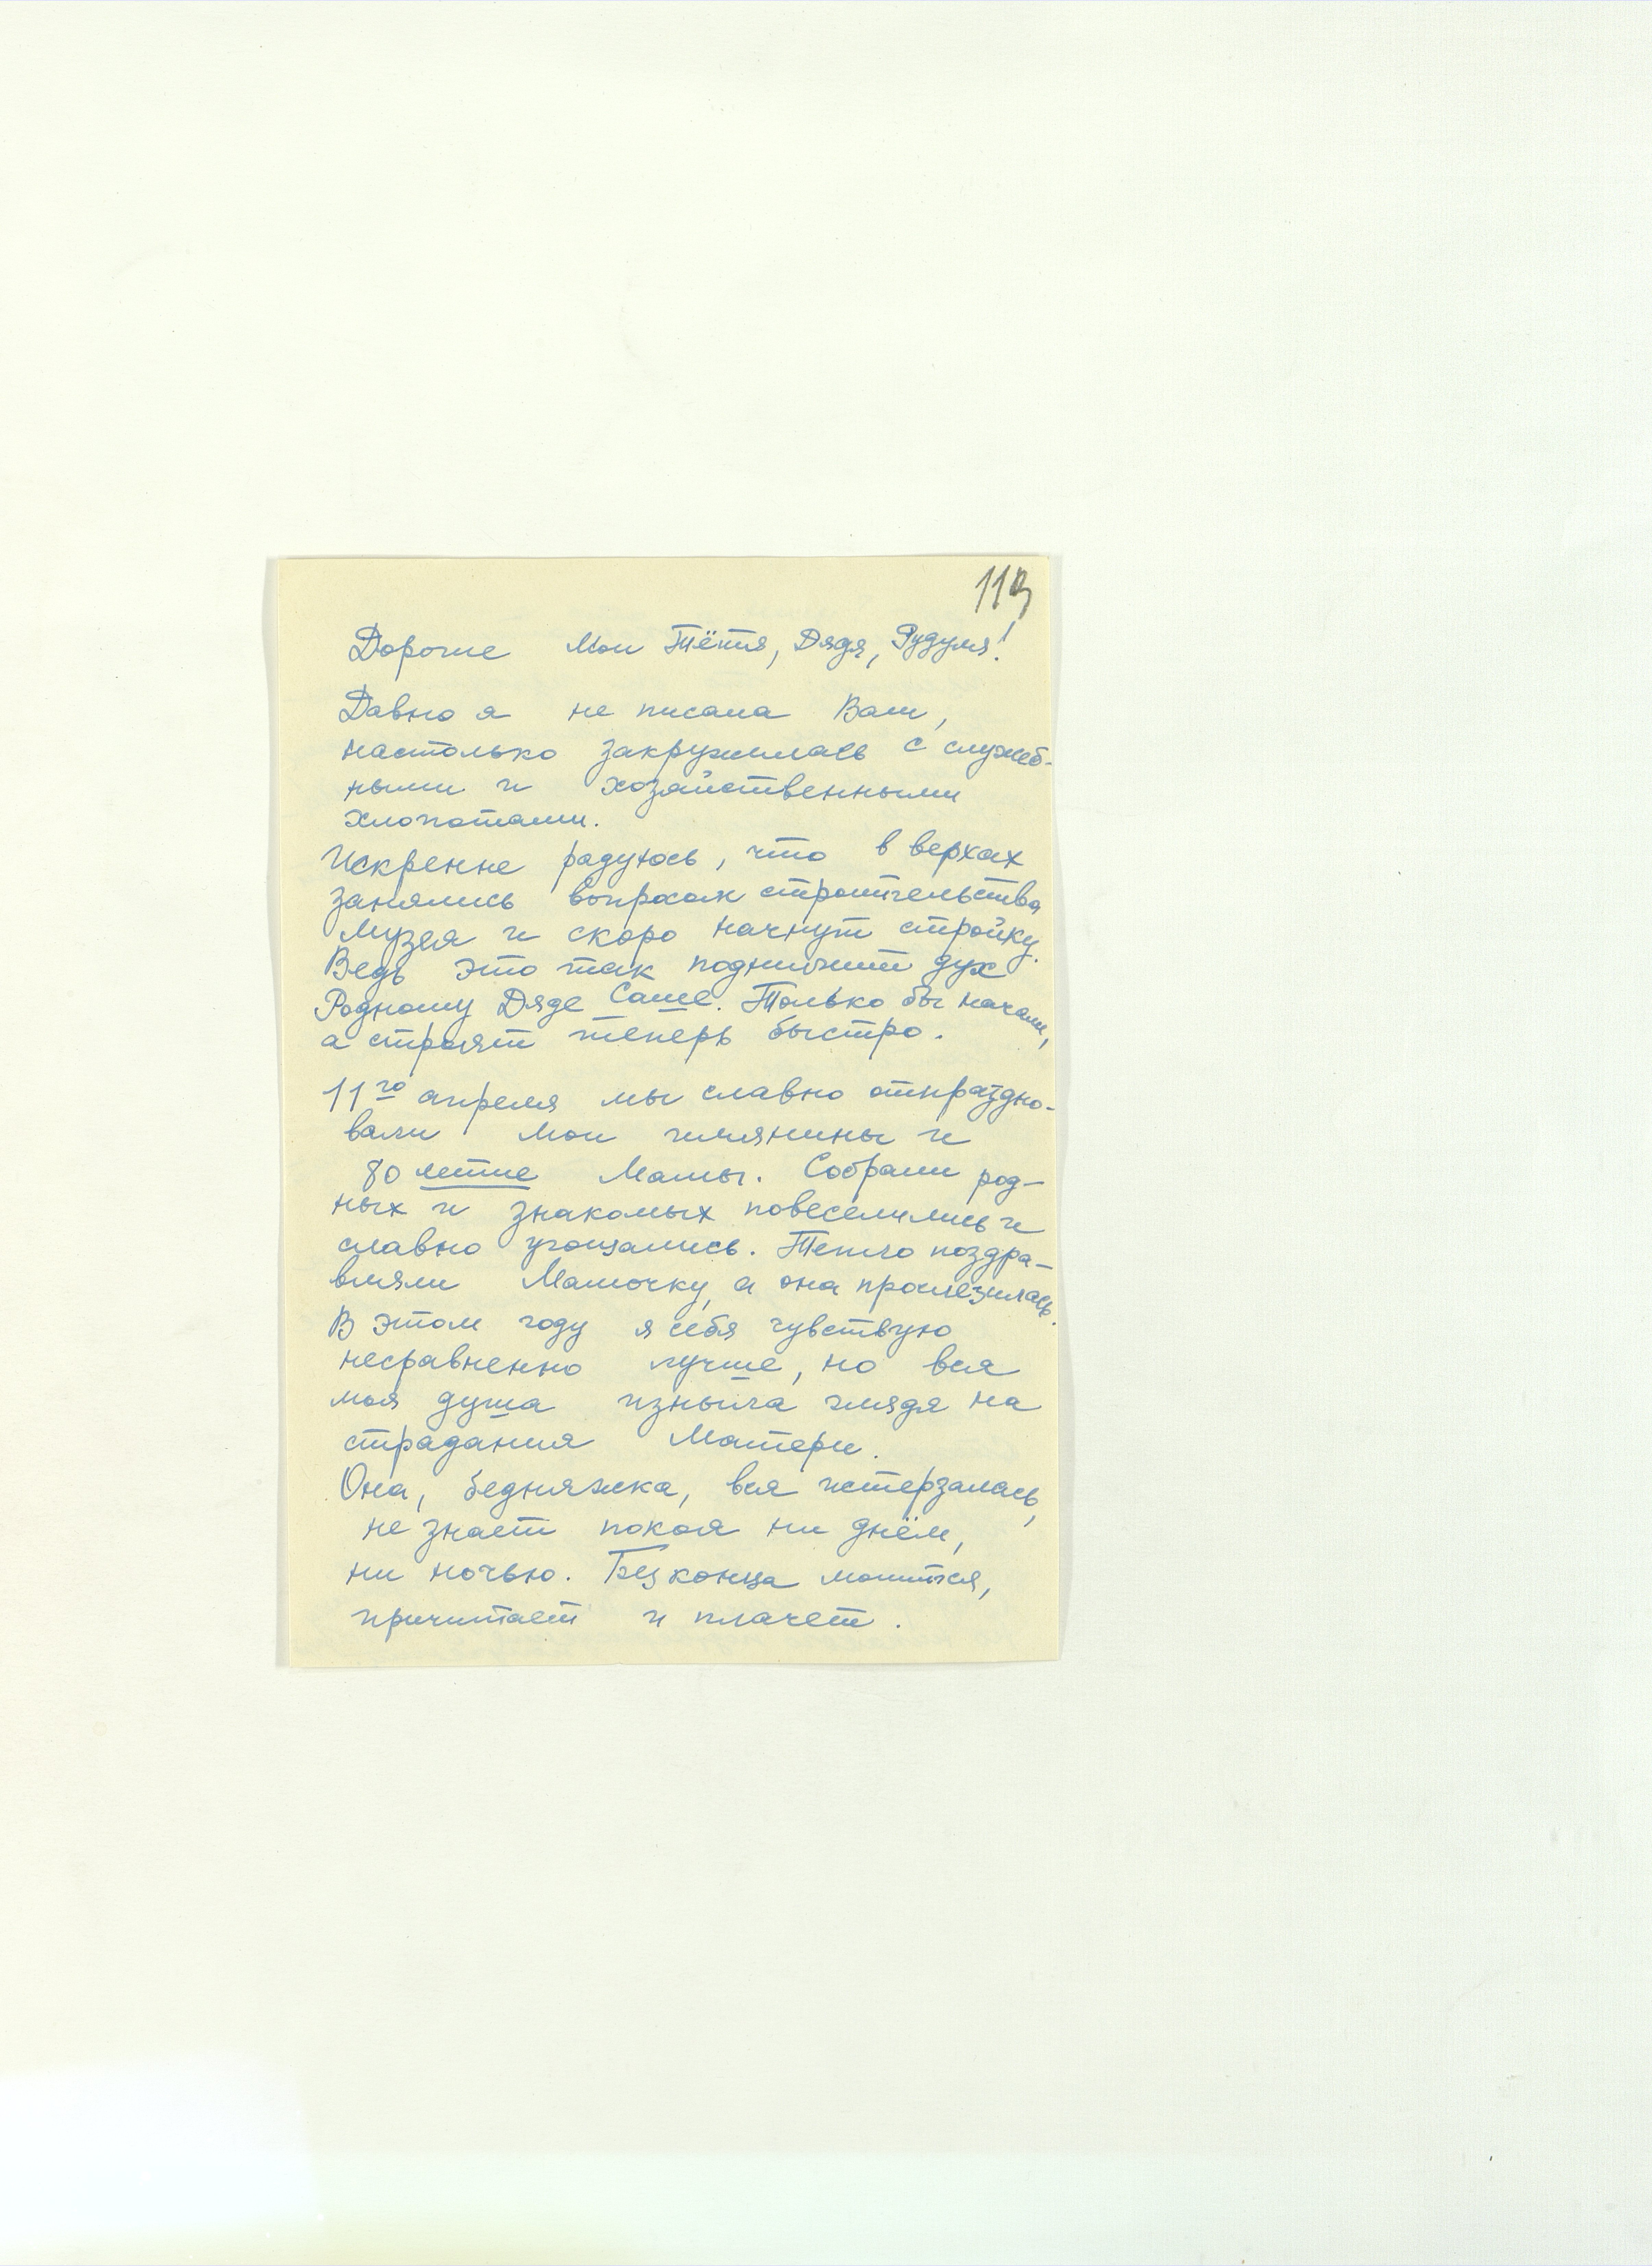 113
Дорогие Мои Тётя, Дядя, Рудуля!
Давно я не писала Вам,
настолько закружилась с служеб-
ными и хозяйственными
хлопотами.
Искренне радуюсь, что в верхах
занялись вопросом строительства
Музея и скоро начнут стройку.
Ведь это так поднимет дух
Родному Дяде Саше. Только бы начали,
а строят теперь быстро.
11го апреля мы славно отпраздно-
вали мои имянины и
80 летие Мамы. Собрали род-
ных и знакомых повеселились и
славно угощались. Тепло поздра-
вляли Мамочку, а она прослезилась.
В этом году я себя чувствую
несравненно лучше, но вся
моя душа изныла глядя на
страдания Матери.
Она, бедняжка, вся истерзалась,
не знает покоя ни днём,
ни ночью. Без конца молится,
причитает и плачет.